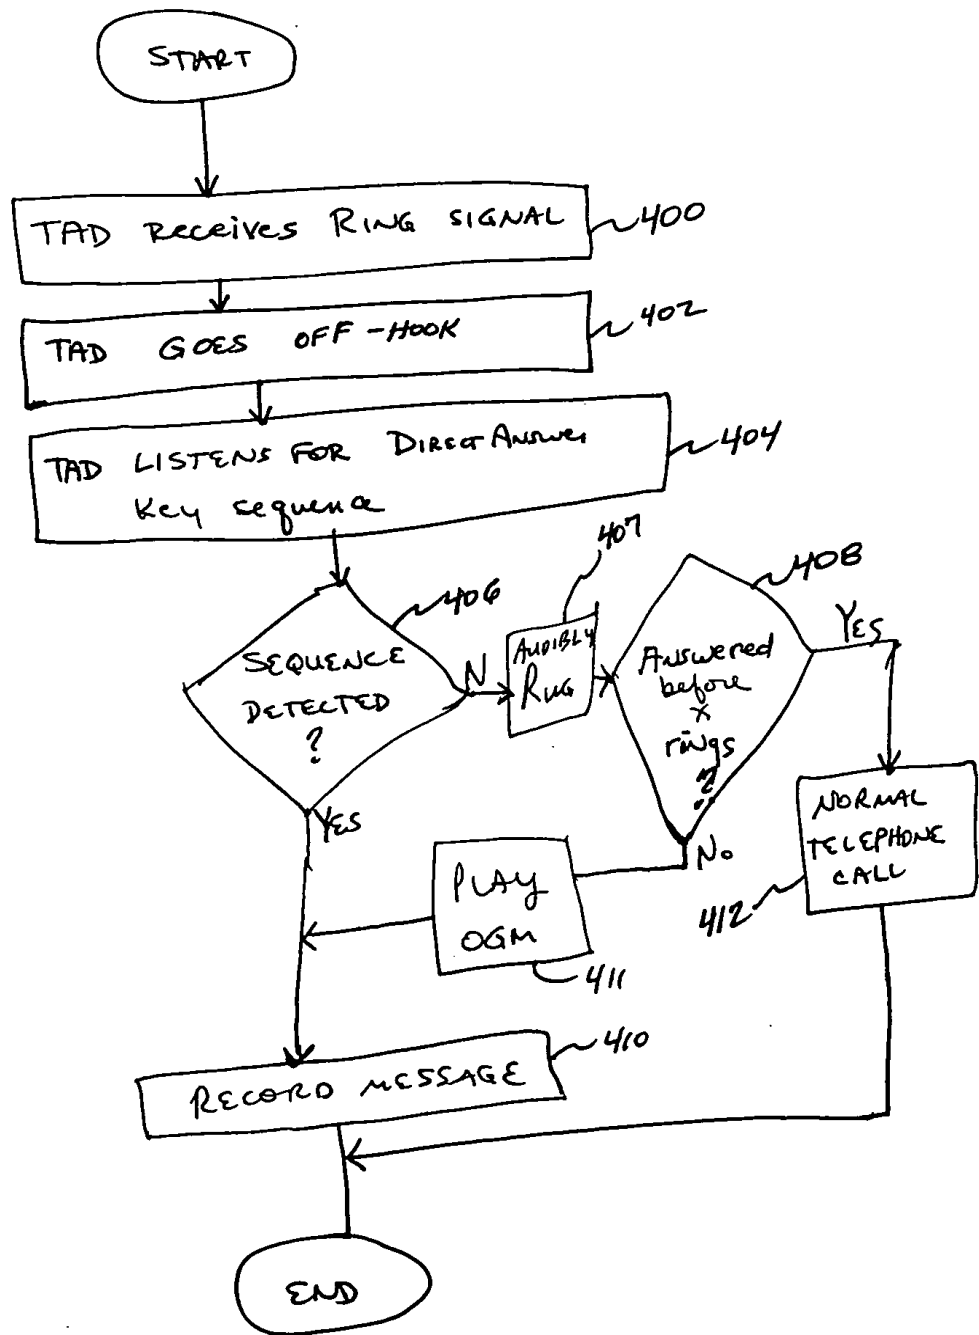 START
TAD Receives RING SIGNAL
400
TAD GOES OFF-HOOK
402
TAD LISTENS FOR Direct Answer
Key sequence
404
406
SEQUENCE
DETECTED
?
N
YES
407
AUDIBLY
RING
408
Answered
before
x
rings
?
YES
No
NORMAL
TELEPHONE
CALL
412
PLAY
OGM
411
RECORD MESSAGE
410
END